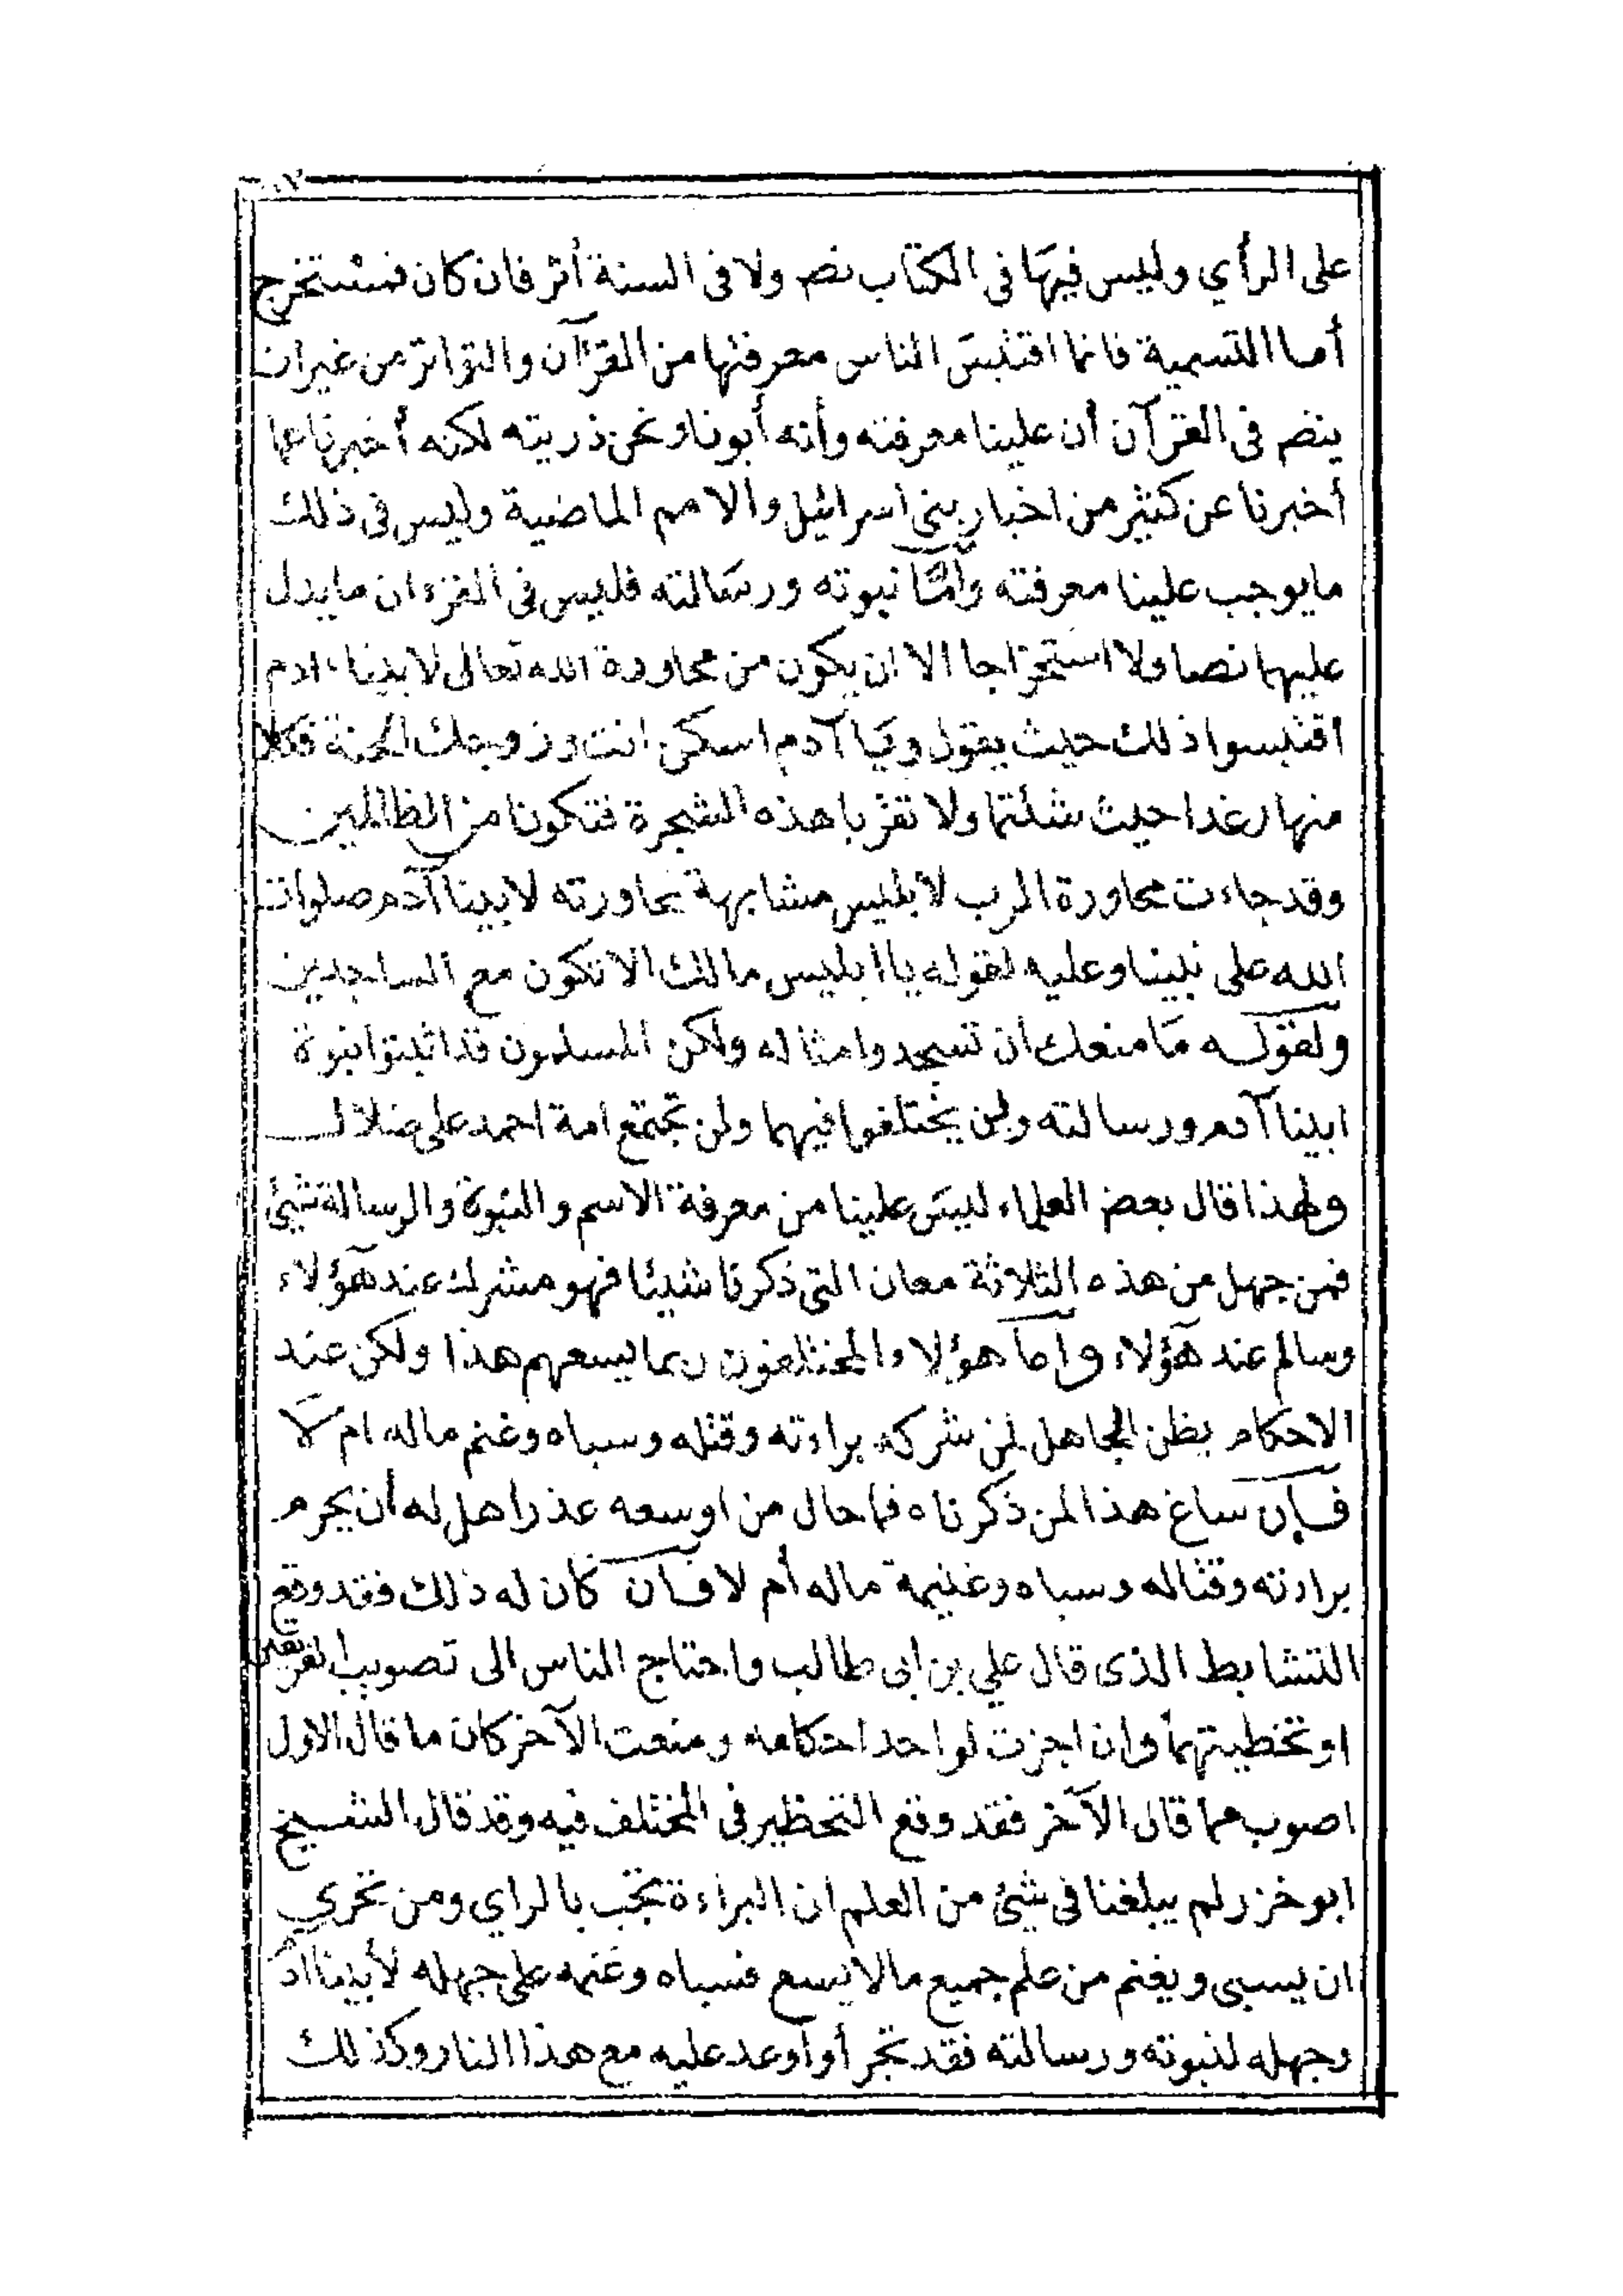 على الرأي وليس فيها في الكتاب نص ولا في السنة أثر فان كان فمستخرج
أما التسمية فانما اقتبس الناس معرفتها من القرآن والتواتر من غيران
ينص في القرآن أن علينا معرفته وأنه أبونا ونحن ذريته لكنه أخبرنا عما
أخبرنا عن كثير من اخبار بني اسرائيل والامم الماضية وليس في ذلك
مايوجب علينا معرفته وأما نبوته ورسالته فليس في القرءان مايدل
عليهما نصا ولا استخراجا الا ان يكون من محاورة الله تعالى لابينا ءادم
اقتبسوا ذلك حيث يقول ويا آدم اسكن انت وزوجك الجنة فكلا
منها رغدا حيث شئتما ولا تقربا هذه الشجرة فتكونا من الظالمين
وقد جاءت محاورة الرب لابليس مشابهة محاورته لابينا آدم صلوات
الله على نبينا وعليه لقوله ياابليس مالك الا تكون مع الساجدين
ولقوله ما منعك ان تسجد وامثاله ولكن المسلمون قد اثبتوا نبوة
ابينا آدم ورسالته ولن يختلفوا فيهما ولن تجتمع امة احمد على ضلال
ولهذا قال بعض العلماء ليس علينا من معرفة الاسم والنبوة والرسالة شيئ
فمن جهل من هذه الثلاثة معان التي ذكرنا شيئا فهو مشرك عند هؤلاء
وسالم عند هؤلاء وأما هؤلاء والمختلفون ربما يسعهم هذا ولكن عند
الاحكام يظن الجاهل لمن شركه براءته وقتله وسباه وغنم ماله ام لا
فإن ساغ هذا لمن ذكرناه فما حال من اوسعه عذرا هل له أن يحرم
براءته وقتاله وسباه وغنيمة ماله أم لا فان كان له ذلك فقد وقع
التشابط الذى قال علي بن ابى طالب واحتاج الناس الى تصويب الفريقين
او تخطيئتهما وان اجزت لواحد احكامه ومنعت الآخر كان ما قال الاول
اصوب مما قال الآخر فقد وقع التحظير في المختلف فيه وقد قال الشيخ
ابو خزر لم يبلغنا في شيئ من العلم ان البراءة تجب بالراي ومن تحرى
ان يسبى ويغنم من علم جميع مالا يسع فسباه وغنمه على جهله لأبينا ادم
وجهله لنبوته ورسالته فقد تجرأ وأوعد عليه مع هذا النار وكذلك